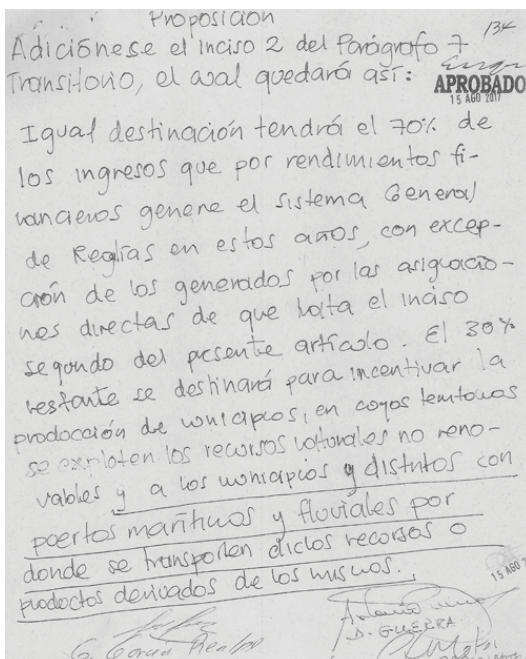 Proposición
134
Adiciónese el inciso 2 del Parágrafo 7
Transitorio, el cual quedará así:
APROBADO
15 AGO 2017
Igual destinación tendrá el 70% de
los ingresos que por rendimientos fi-
nancieros genere el sistema General
de Reglías en estos años, con excep-
ción de los generados por las asignacio-
nes directas de que trata el inciso
segundo del presente artículo. El 30%
restante se destinará para incentivar la
producción de municipios, en cuyos territorios
se exploten los recursos naturales no reno-
vables y a los municipios y distritos con
puertos marítimos y fluviales por
donde se transporten dichos recursos o
productos derivados de los mismos.
15 AGO
D. GUERRA
G. García